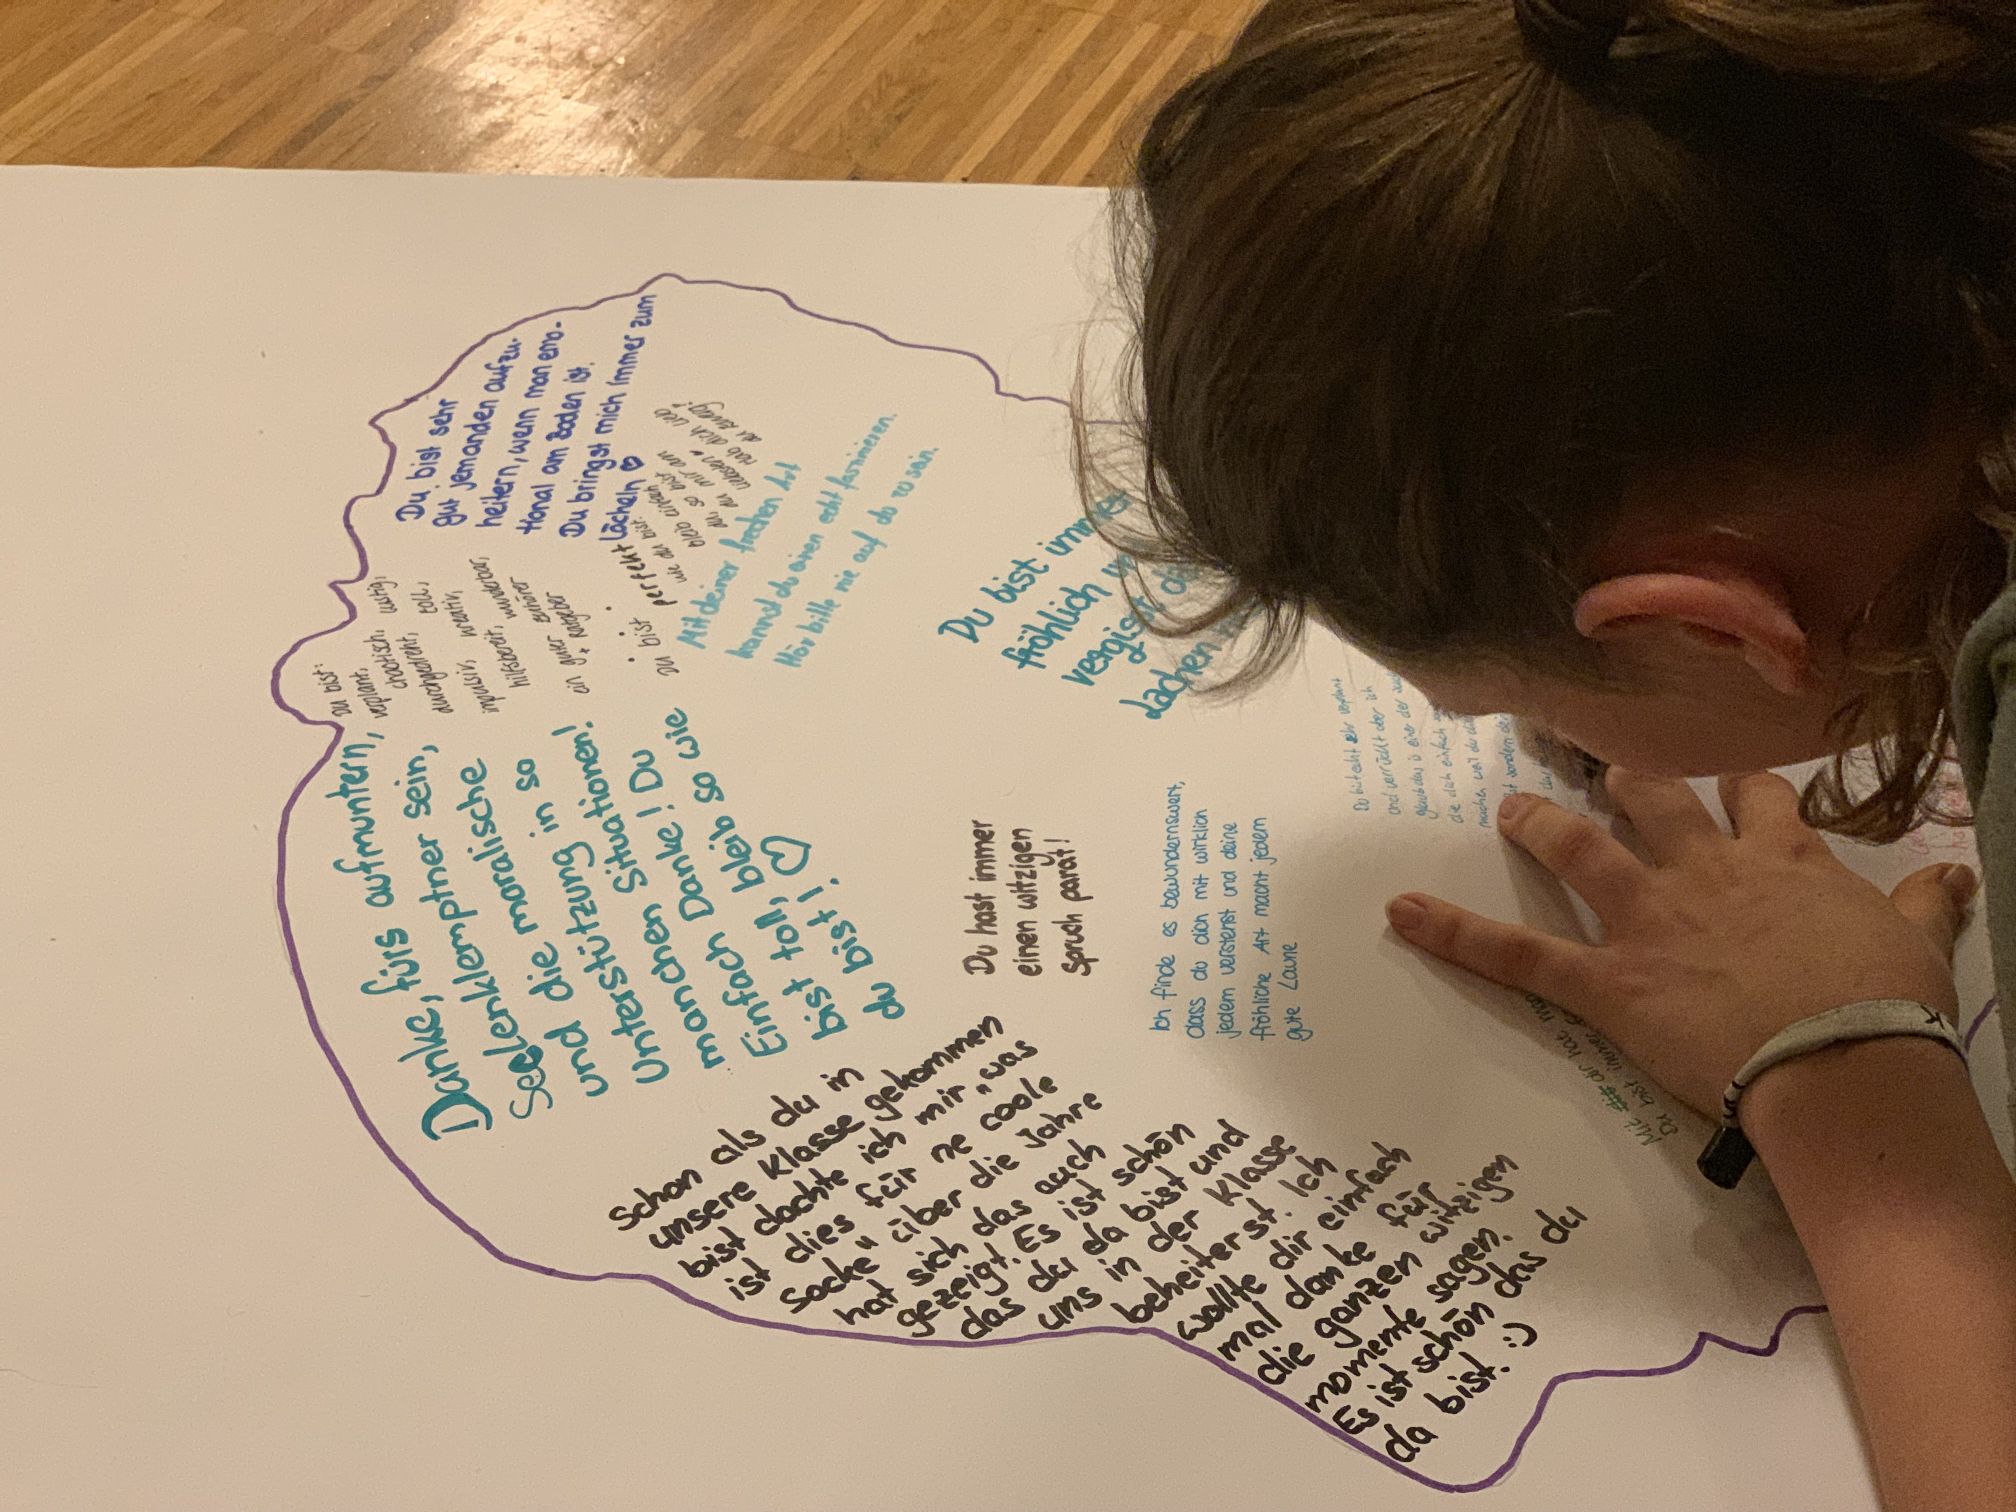 Du bist sehr
gut jemanden aufzu-
heitern, wenn man emo-
tional am Boden ist.
Du bringst mich immer zum
Lächeln
du bist:
verplant,
chaotisch, lustig,
durchgedreht, toll,
impulsiv, kreativ,
hilfsbereit, wunderbar,
ein guter Zuhörer
+ Ratgeber
du bist perfekt
wie du bist.
bleib einfach
so bist
du mir am
liebsten
hab dich lieb
Mit deiner frechen Art
kannst du einen echt faszinieren.
Hör bitte nie auf du zu sein.
Danke, fürs aufmuntern,
Seelenklemptner sein,
und die moralische
Unterstützung in so
manchen Situationen!
Einfach Danke! Du
bist toll, bleib so wie
du bist!
Du bist immer
fröhlich
vergisst
Lachen
Du hast immer
einen witzigen
Spruch parat!
Ich finde es bewundernswert,
dass du dich mit wirklich
jedem verstehst und deine
fröhliche Art macht jedem
gute Laune
Schon als du in
unsere Klasse gekommen
bist dachte ich mir „was
ist dies für ne coole
Socke" über die Jahre
hat sich das auch
gezeigt. Es ist schön
das du da bist und
uns in der Klasse
beheiterst. Ich
wollte dir einfach
mal danke für
die ganzen witzigen
momente sagen.
Es ist schön das du
da bist. :)
Du bist echt sehr verplant
und verrückt aber ich
glaub das is einer der
die dich einfach
machen weil du
sondern
Mit dir hat man
Du bist immer